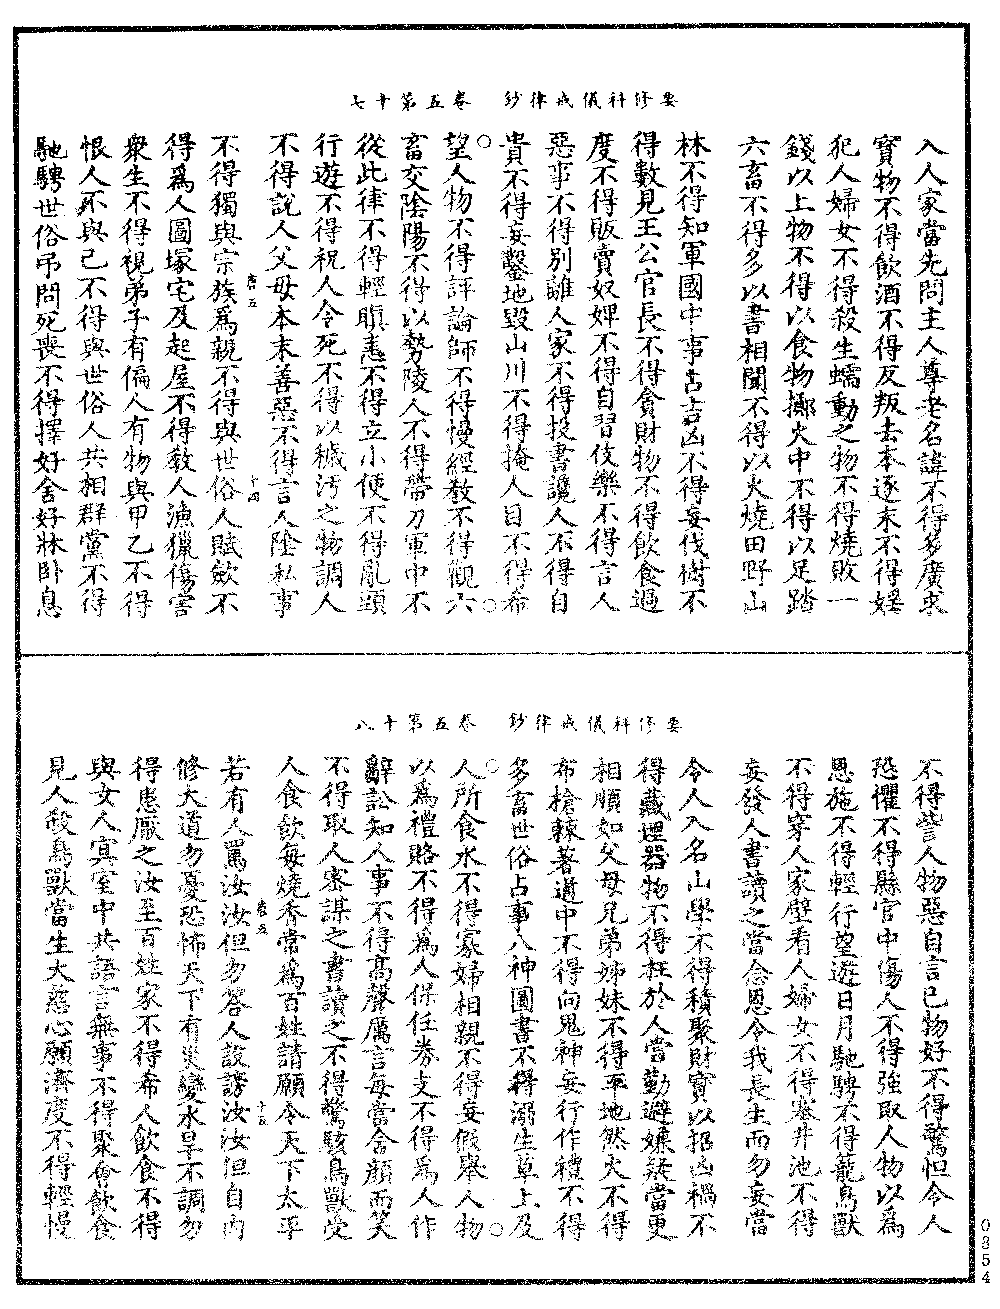 要修科儀戒律鈔　卷五第十七
入人家當先問主人尊老名諱不得多廣求
寶物不得飲酒不得反叛去本逐末不得婬
犯人婦女不得殺生蠕動之物不得燒敗一
錢以上物不得以食物擲火中不得以足踏
六畜不得多以書相聞不得以火燒田野山
林不得知軍國中事占吉凶不得妄伐樹不
得數見王公官長不得貪財物不得飲食過
度不得販賣奴婢不得自習伎樂不得言人
惡事不得別離人家不得投書讒人不得自
貴不得妄鑿地毀山川不得掩人目不得希
望人物不得評論師不得慢經教不得觀六
畜交陰陽不得以勢陵人不得帶刀軍中不
從此律不得輕瞋恚不得立小便不得亂頭
行遊不得祝人令死不得以穢污之物調人
不得說人父母本末善惡不得言人陰私事
唐五　十四
不得獨與宗族為親不得與世俗人賦歛不
得爲人圖塚宅及起屋不得教人漁獵傷害
衆生不得視弟子有偏人有物與甲乙不得
恨人不與己不得與世俗人共相群黨不得
馳騁世俗弔問死喪不得擇好舍好牀卧息
要修科儀戒律鈔　卷五第十八
不得訾人物惡自言已物好不得驚怛令人
恐懼不得縣官中傷人不得強取人物以爲
恩施不得輕行望遊日月馳騁不得籠鳥獸
不得穿人家壁看人婦女不得塞井池不得
妄發人書讀之當念恩令我長生而勿妄當
令人入名山學不得積聚財寶以招凶禍不
得藏埋器物不得枉於人當勤避嫌疑當更
相順如父母兄弟姊妹不得平地然火不得
布槍棘著道中不得向鬼神妄行作禮不得
多畜世俗占事八神圖書不得溺生草上及
人所食水不得寡婦相親不得妄假舉人物
以爲禮賂不得爲人保任券支不得爲人作
辭訟知人事不得高聲厲言每當含顏而笑
不得取人密謀之書讀之不得驚駭鳥獸受
人食飲每燒香常爲百姓請願令天下太平
唐五　十五
若有人罵汝汝但勿答人設謗汝汝但自內
修大道勿憂恐怖天下有災變水旱不調勿
得患厭之汝至百姓家不得希人飲食不得
與女人冥室中共語言無事不得聚會飲食
見人殺鳥獸當生大慈心願濟度不得輕慢
0354